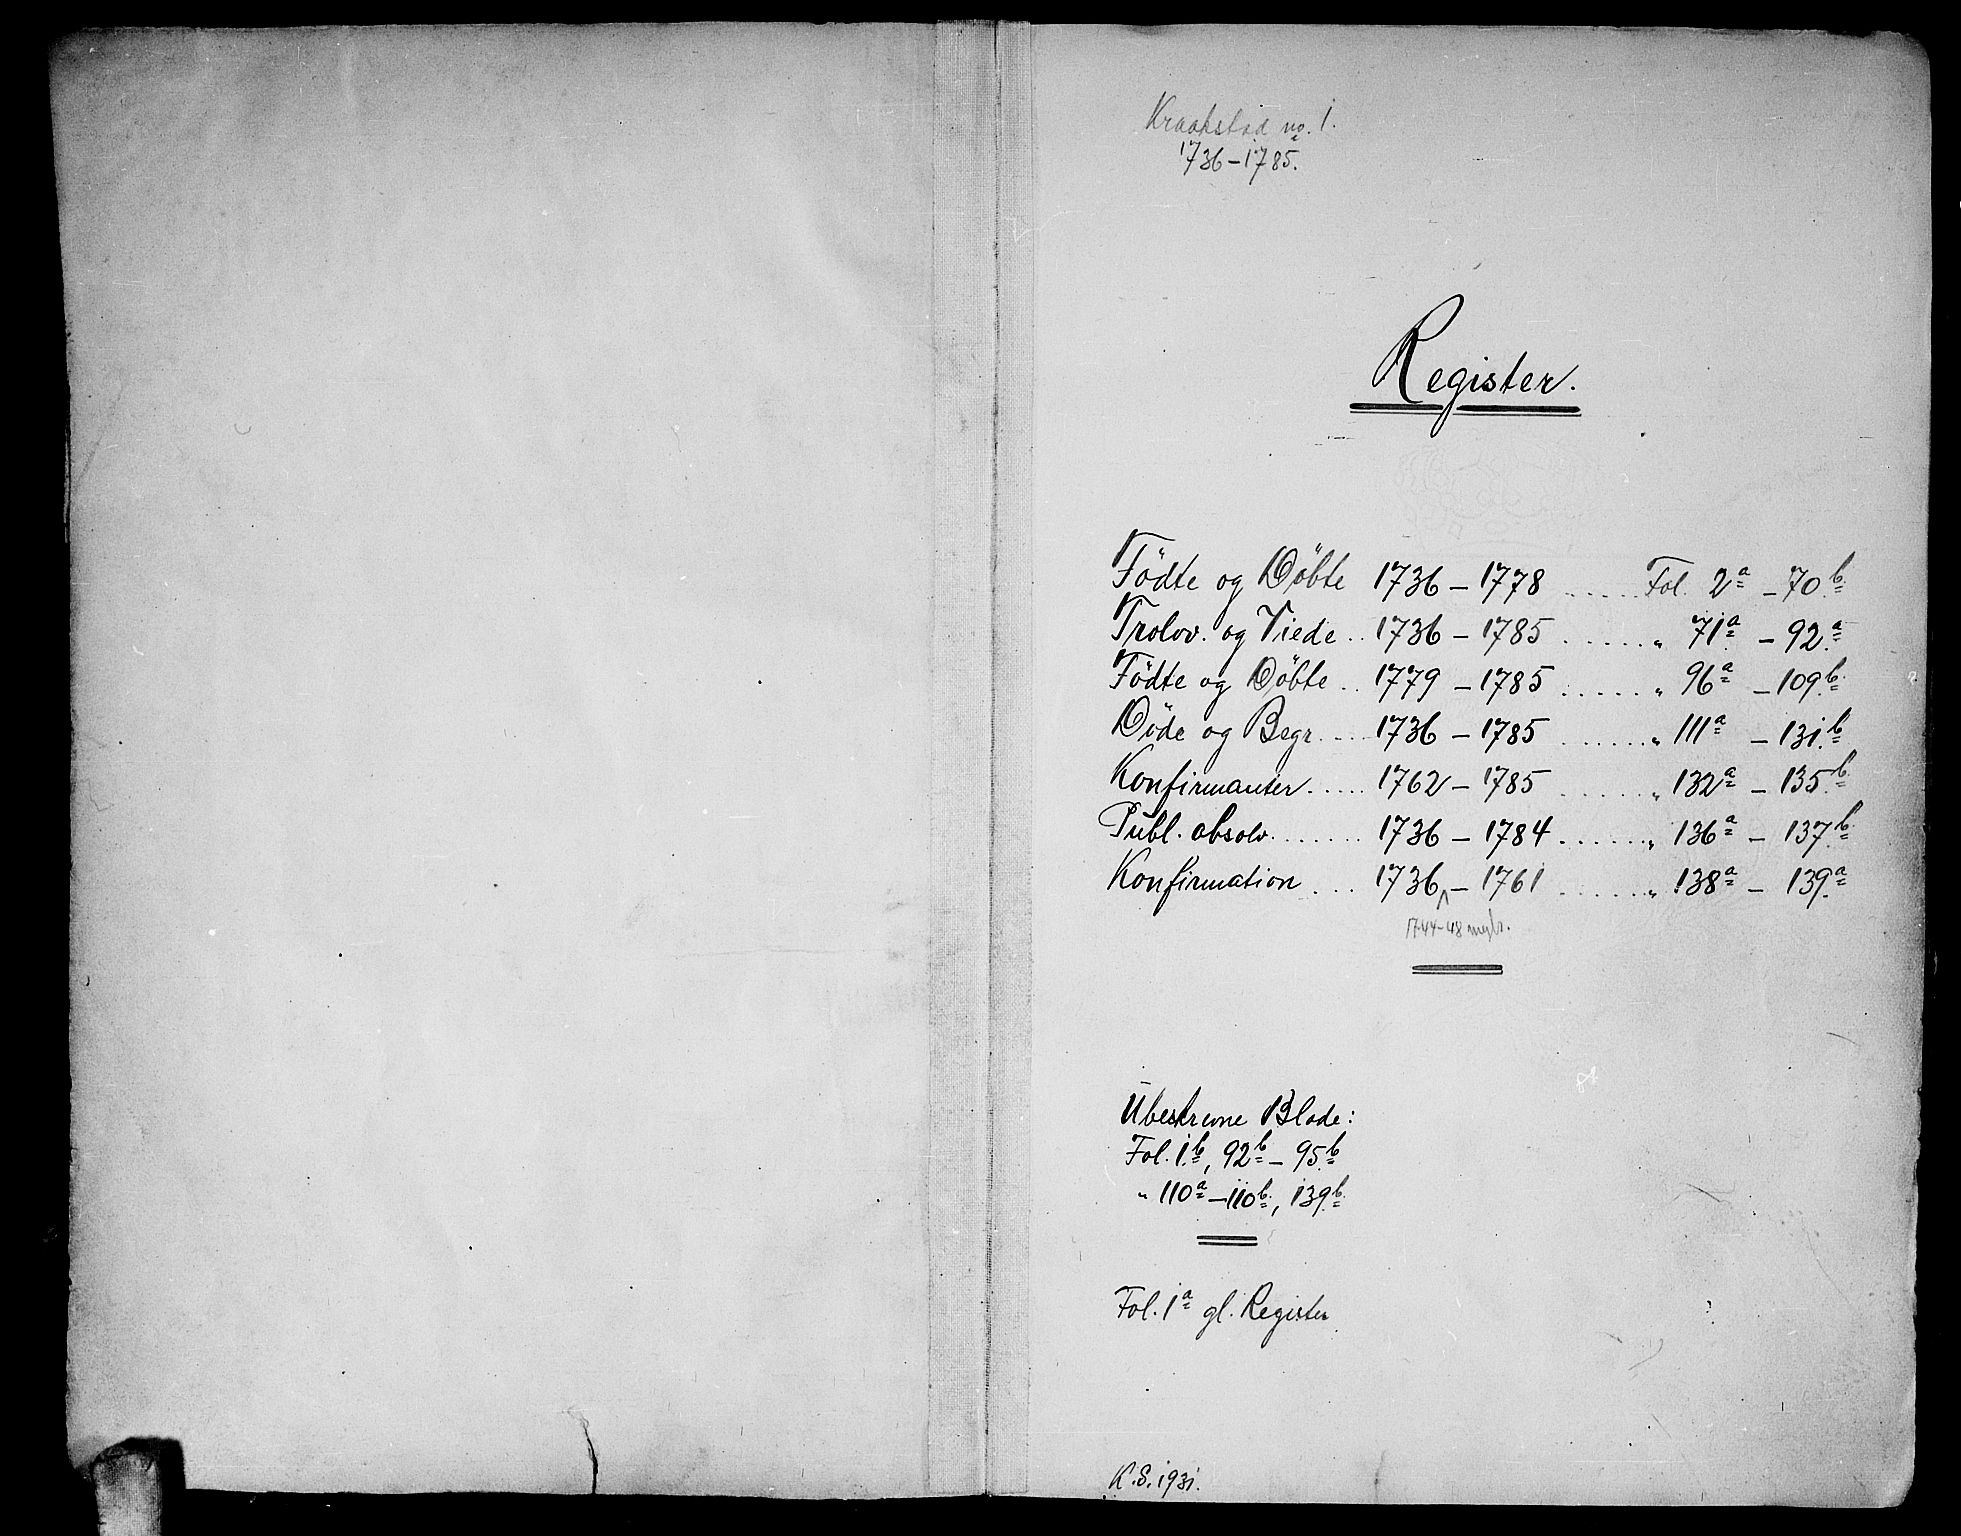 Kraakstad no. 1.
1736–1785.
Register.
Födte og Döbte 1736 – 1778 ...... Fol. 2a – 70b
Trolov. og Viede .. 1736 – 1785 ...... „ 71a – 92a
Födte og Döbte .. 1779 – 1785 ...... „ 96a – 109b
Döde og Begr. ... 1736 – 1785 ...... „ 111a – 131b
Konfirmanter ..... 1762 – 1785 ...... „ 132a – 135b
Publ. absolv. ...... 1736 – 1784 ...... „ 136a – 137b
Konfirmation ... 1736 – 1761 ...... „ 138a – 139a
1744–48 mglr.
Ubeskrevne Blade:
Fol. 1b, 92b – 95b
„ 110a – 110b, 139b
Fol. 1a gl. Register
K.S. 1931.